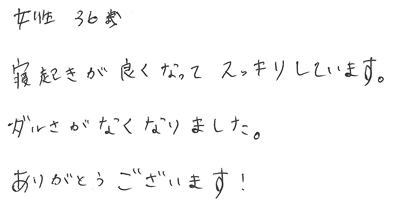 女性 36歳
寝起きが良くなって スッキリしています。
ダルさがなくなりました。
ありがとうございます！